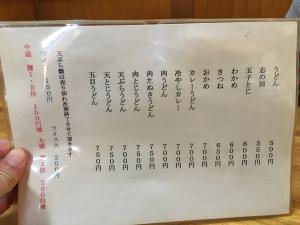 うどん 500円
志の田 550円
玉子とじ 600円
わかめ 600円
きつね 650円
おかめ 700円
カレーうどん 700円
冷やしカレー 700円
肉うどん 700円
肉たぬきうどん 750円
天ぷらうどん 700円
肉とじうどん 750円
天とじうどん 750円
五目うどん 750円
天ぷら類は売り切れ次第終了させて頂きます
ライス大 200円
中盛 麺1.5倍 150円増